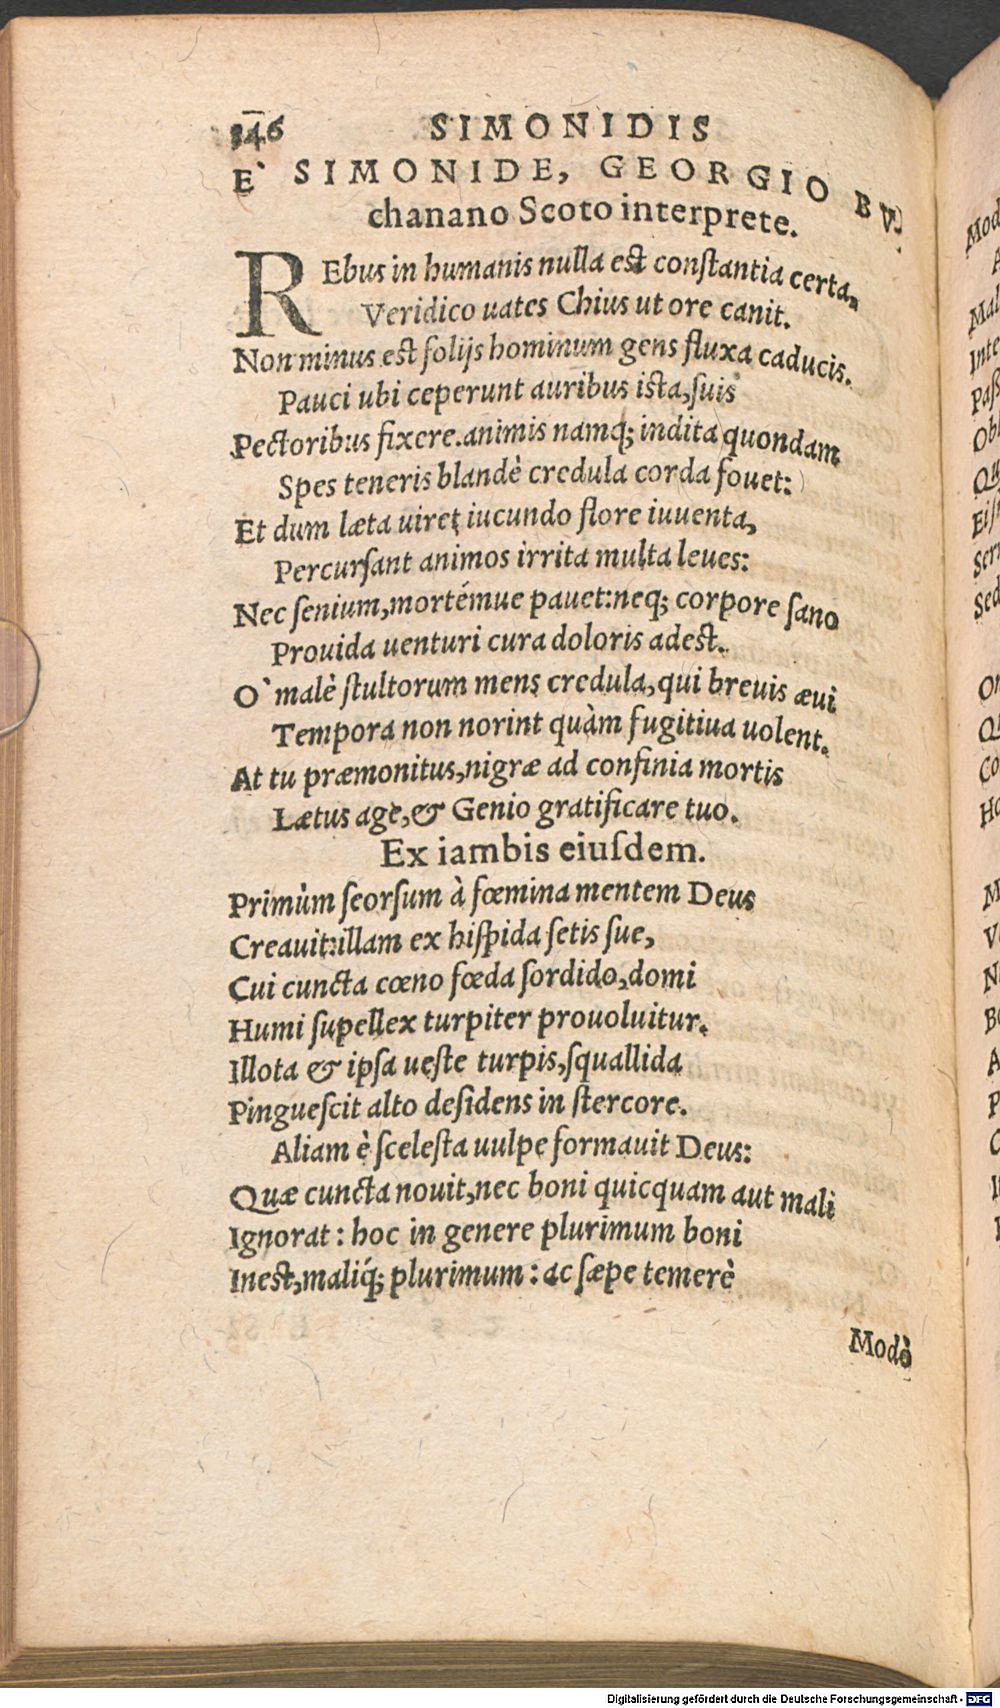 346 SIMONIDIS
E` SIMONIDE, GEORGIO BV
chanano Scoto interprete.
REbus in humanis nulla est conſtantia certa,
Veridico uates Chius ut ore canit.
Non minus est folijs hominum gens fluxa caducis.
Pauci ubi ceperunt auribus ista, ſuis
Pectoribus fixere. animis namq; indita quondam
Spes teneris blandè credula corda fouet:
Et dum læta uiret iucundo flore iuuenta,
Percurſant animos irrita multa leues:
Nec ſenium, mortémue pauet: neq; corpore ſano
Prouida uenturi cura doloris adest.
O` malè ſtultorum mens credula, qui breuis æui
Tempora non norint quàm fugitiua uolent.
At tu præmonitus, nigræ ad confinia mortis
Lætus age, & Genio gratificare tuo.
Ex iambis eiuſdem.
Primùm ſeorſum à fœmina mentem Deus
Creauit: illam ex hiſpida ſetis ſue,
Cui cuncta cœno fœda ſordido, domi
Humi ſupellex turpiter prouoluitur.
Illota & ipſa ueſte turpis, ſquallida
Pingueſcit alto deſidens in ſtercore.
Aliam è ſceleſta uulpe formauit Deus:
Quæ cuncta nouit, nec boni quicquam aut mali
Ignorat: hoc in genere plurimum boni
Inest, maliq́; plurimum: ac ſæpe temerè
Modò
Digitalisierung gefördert durch die Deutsche Forschungsgemeinschaft - DFG